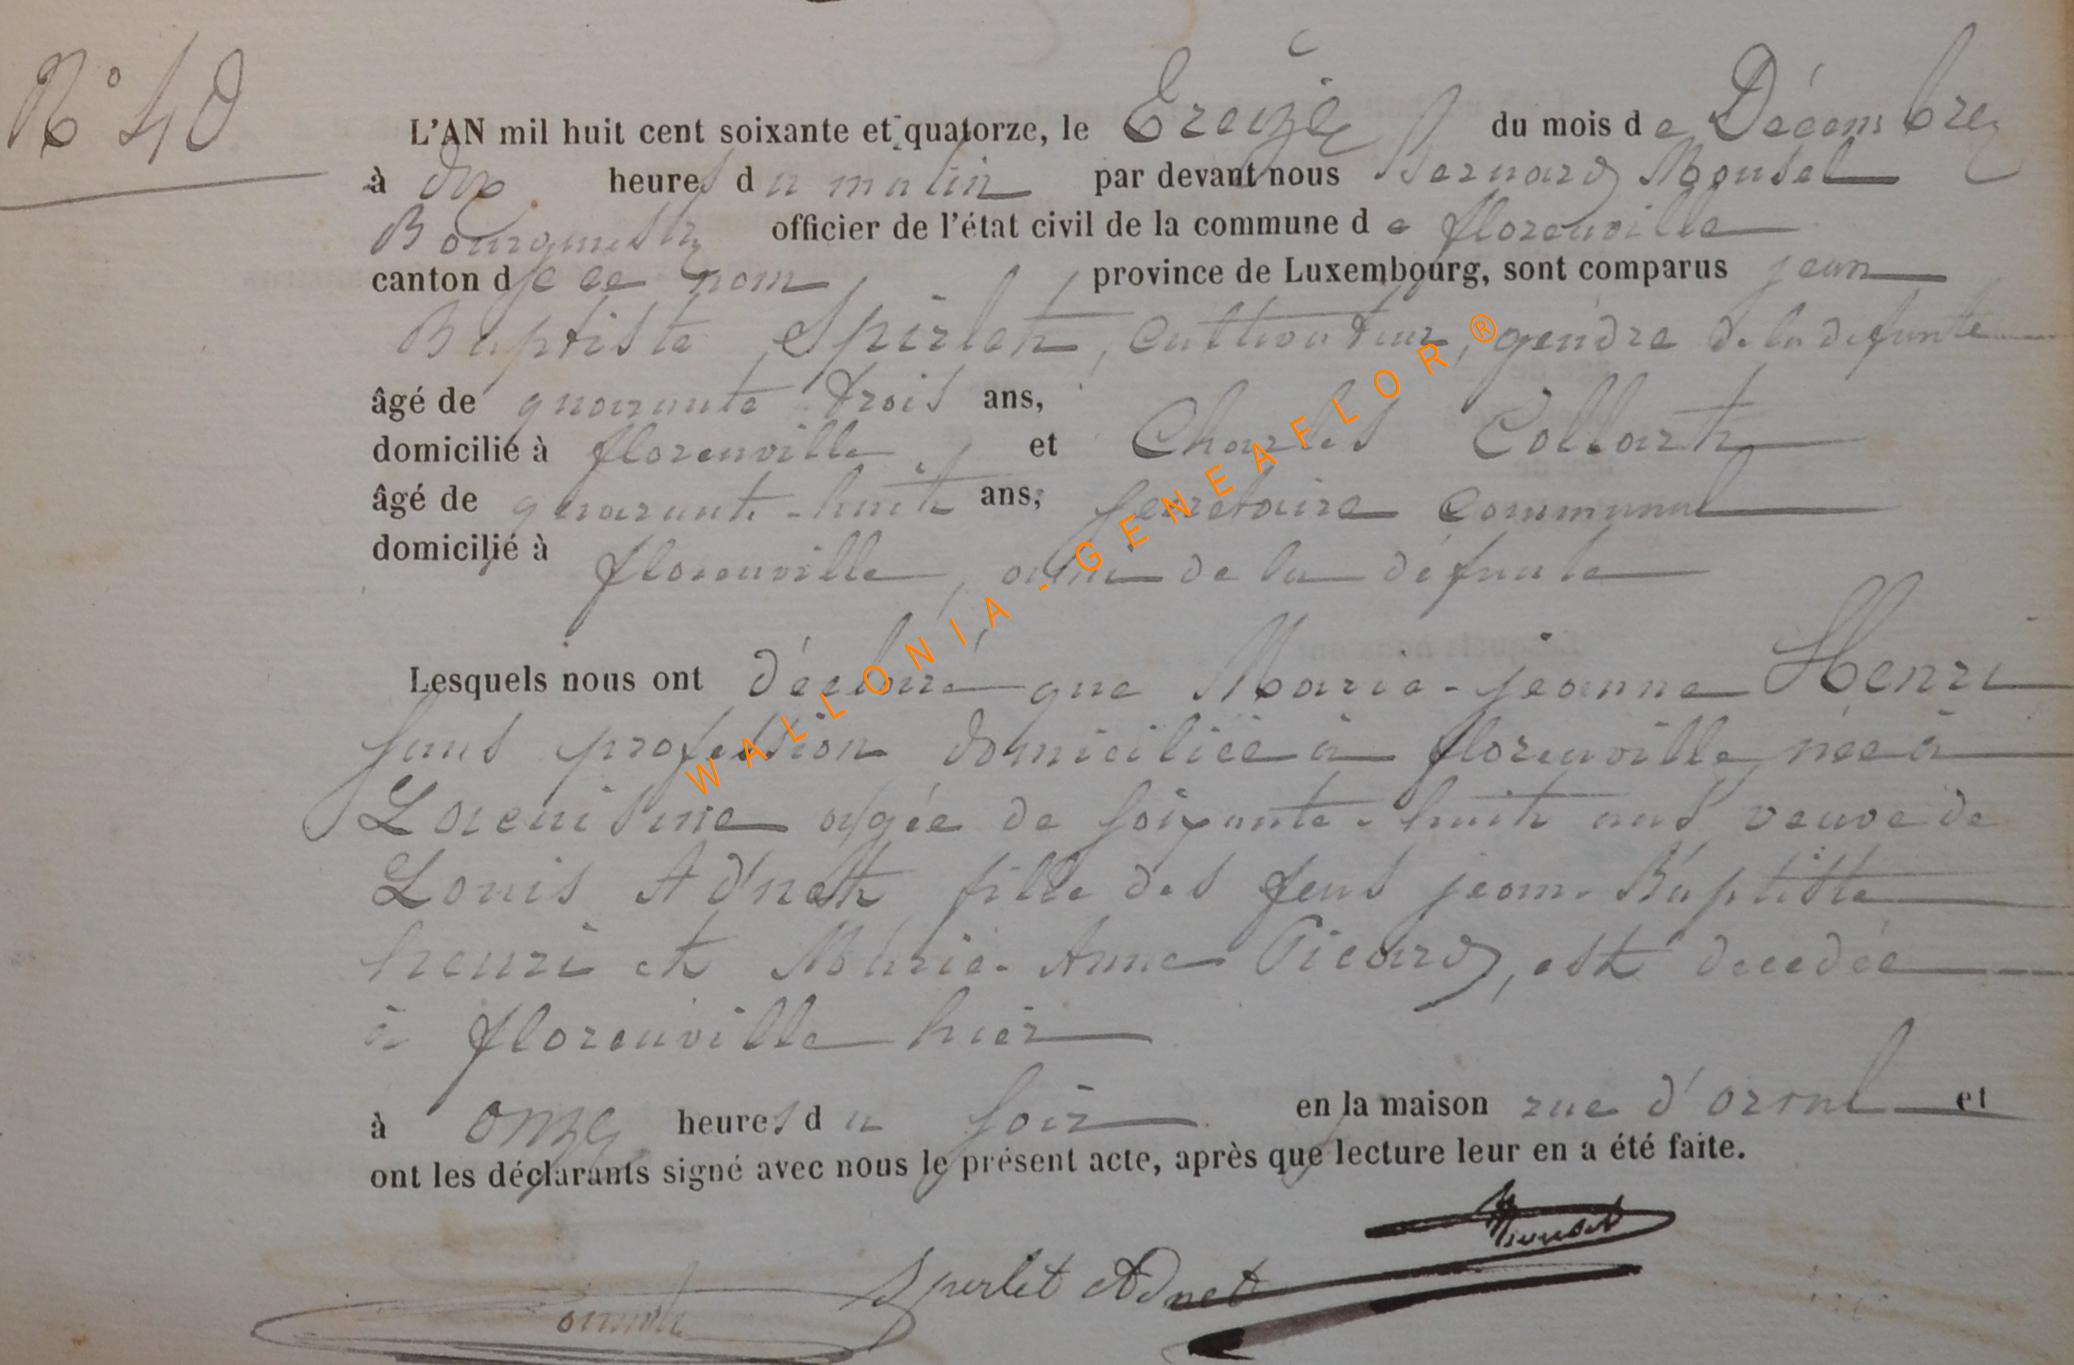 N° 40
L'AN mil huit cent soixante et quatorze, le Treize du mois de Décembre
à dix heures du matin par devant nous Bernard Mousel
Bourgmestre officier de l'état civil de la commune de florenville
canton de ce nom province de Luxembourg, sont comparus jean
Baptiste Spirlet, cultivateur, gendre de la défunte
âgé de quarante trois ans,
domicilié à florenville et Charles Collart
âgé de quarante-huit ans, secretaire communal
domicilié à florenville, ami de la défunte
Lesquels nous ont déclaré que Marie-jeanne Henri
sans profession domiciliée à florenville née à
Lacuisine agée de soixante-huit ans veuve de
Louis Adnet fille des feus jean-Baptiste
henri et Marie-Anne Picard, est décedée
à florenville hier
à onze heures du soir en la maison rue d'orval et
ont les déclarants signé avec nous le présent acte, après que lecture leur en a été faite.
Mousel
Spirlet Adnet
WALLONIA-GENEAFLOR®